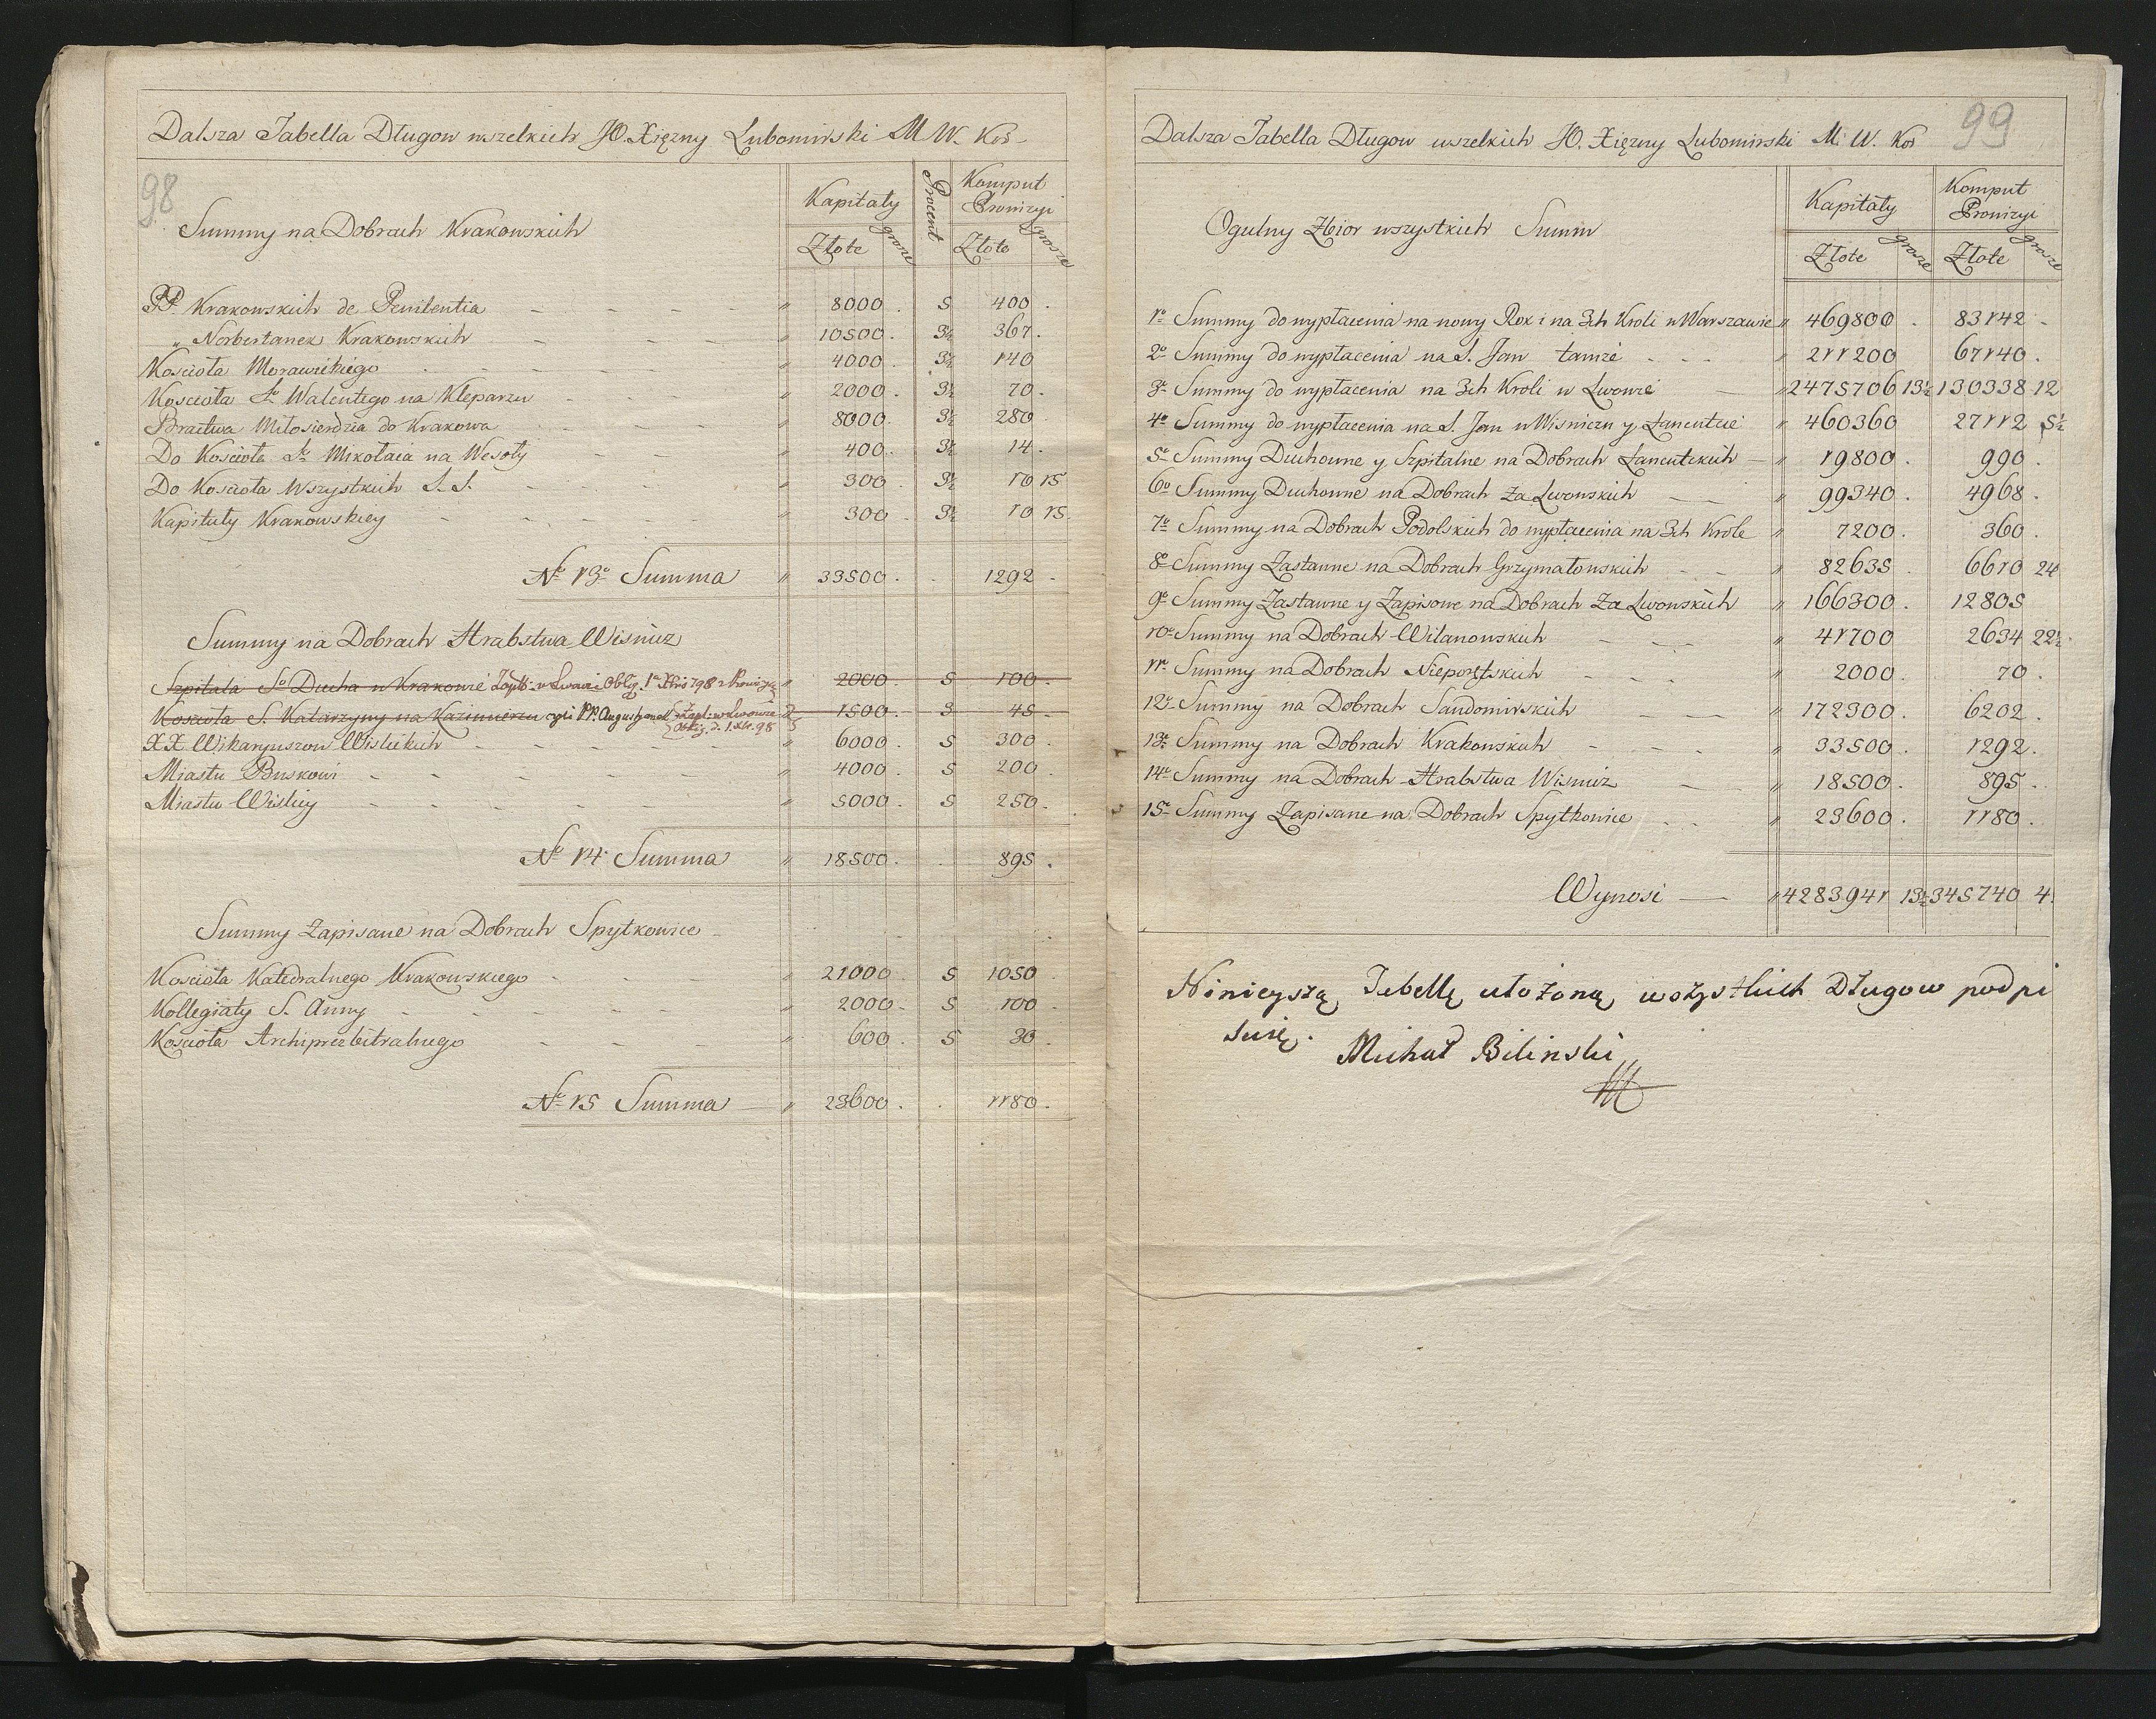 Dalsza Tabella Długow wszelkich JO. Xiężny Lubomirski M W. Kor
98
Summy na Dobrach Krakowskich
Kapitały
Procent
Komput Prowizyi
Złote grosze Złote grosze
PP. Krakowskich de Penitentia - - - - " 8000 . 5 400 .
" Norbertanek Krakowskich - - - " 10500 . 3½ 367 .
Koscioła Morawickiego - - - - " 4000 . 3½ 140
Koscioła So Walentego na Kleparzu - - - " 2000 . 3½ 70 .
Bractwa Miłosierdzia do Krakowa - - - - " 8000 3½ 280
Do Koscioła So Mikołaia na Wesoły - - - " 400 . 3½ 14 .
Do Koscioła Wszystkich S. S. - - - - " 300 . 3½ 10 15
Kapituły Krakowskiey - - - - - " 300 . 3½ 10 15.
No 13o Summa " 33500 . . 1292 .
Summy na Dobrach Hrabstwa Wisnicz
Szpitala So Ducha w Krakowie Zapł: w Lwowie Oblig. 1a Xbris 798 z Prowizyą " 2000 . 5 100 .
Koscioła S. Katarzyny na Kazimierzu czyli PP. Augustyanek Zapl: w Lwowie " 1500 . 3 45 .
Oblig. d. 1. Xbr. 98
XX Wikaryuszow Wislickich - - - - " 6000 . 5 300 .
Miastu Buskowi - - - - - " 4000 . 5 200 .
Miastu Wislicy - - - - - " 5000 . 5 250 .
No 14. Summa " 18500 . . 895 .
Summy Zapisane na Dobrach Spytkowice
Kosciola Katedralnego Krakowskiego - - - " 21000 . 5 1050
Kollegiaty S. Anny - - - - - " 2000 . 5 100 .
Kosciola Archiprezbitralnego - - - " 600 . 5 30 .
No 15 Summa - " 23600 . . 1180 .
Dalsza Tabella Długow wszelkich JO. Xiężny Lubomirski M. W. Kor
99
Ogulny Zbior wszystkich Summ
Kapitały
Komput Prowizyi
Złote grosze Złote grosze
1o Summy do wypłacenia na nowy Rok i na 3ch Kroli w Warszawie " 469800 . 83142 .
2o Summy do wypłacenia na S. Jan tamże - - - " 211200 67140 .
3o Summy do wypłacenia na 3ch Kroli w Lwowie - " 2475706 13½ 130338 12
4o Summy do wypłacenia na S. Jan w Wisniczu y Łancutcie " 460360 27112 5½
5o Summy Duchowne y Szpitalne na Dobrach Łancutckich - " 19800 . 990 .
6o Summy Duchowne na Dobrach Za Lwowskich - - " 99340 . 4968 .
7o Summy na Dobrach Podolskich do wypłacenia na 3ch Krole " 7200 . 360 .
8o Summy Zastawne na Dobrach Grzymałowskich - - " 82635 . 6610 24
9o Summy Zastawne y Zapisowe na Dobrach Za Lwowskich " 166300 . 12805
10o Summy na Dobrach Wilanowskich - - - " 41700 2634 22½.
11o Summy na Dobrach Nieporętskich - - - " 2000 . 70 .
12o Summy na Dobrach Sandomirskich - - " 172300 . 6202 .
13o Summy na Dobrach Krakowskich - - - " 33500 . 1292 .
14o Summy na Dobrach Hrabstwa Wisnicz - - " 18500 . 895 .
15o Summy Zapisane na Dobrach Spytkowice - - " 23600 . 1180 .
Wynosi - " 4283941 13½ 345740 4.
Ninieyszą Tabellę ułożoną wszystkich Długow podpi
suię.
Michał Bilinski